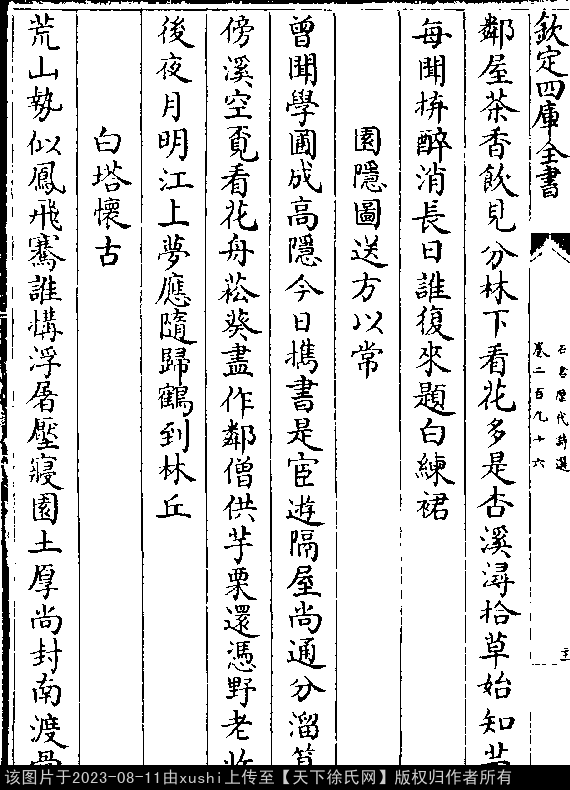 欽定四庫全書
石倉歷代詩選
卷二百九十六
鄰屋茶香飲見分林下看花多是杏溪潯拾草始知
每聞拚醉消長日誰復來題白練裙
園隱圖送方以常
曾聞學圃成高隱今日擕書是宦遊隔屋尚通分溜
傍溪空覓看花舟菘葵盡作鄰僧供芋栗還憑野老收
後夜月明江上夢應隨歸鶴到林丘
白塔懷古
荒山勢似鳳飛騫誰構浮屠壓寢園土厚尚封南渡骨
该图片于2023-08-11由xushi上传至【天下徐氏网】版权归作者所有